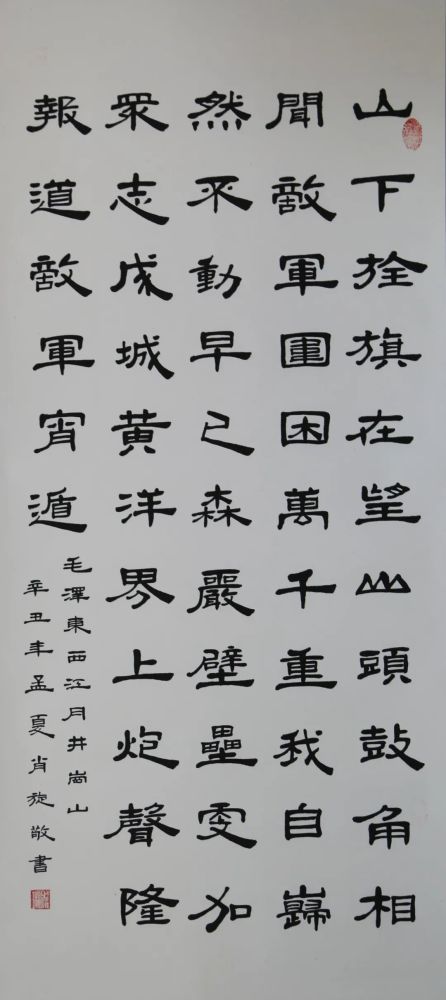 山下旌旗在望山頭鼓角相
聞敵軍圍困萬千重我自巋
然不動早已森嚴壁壘更加
眾志成城黃洋界上炮聲隆
報道敵軍宵遁
毛澤東西江月井崗山
辛丑年孟夏肖旋敬書